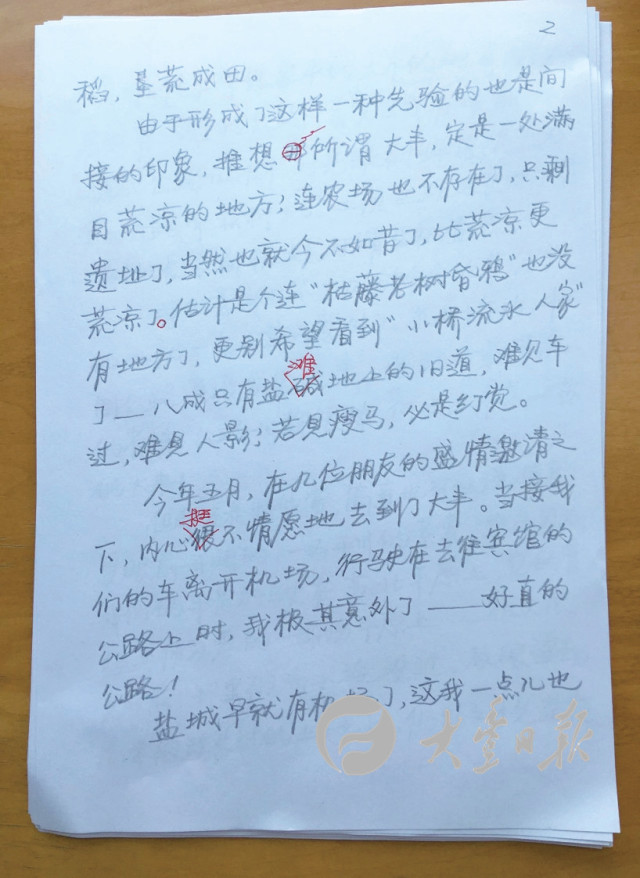 2
稻，垦荒成田。
由于形成了这样一种先验的也是间
接的印象，推想所谓大丰，定是一处满
目荒凉的地方；连农场也不存在了，只剩
遗址了，当然也就今不如昔了，比荒凉更
荒凉了。估计是个连“枯藤老树昏鸦”也没
有地方了，更别希望看到“小桥流水人家”
滩
了——八成只有盐碱地上的旧道，难见车
过，难见人影；若见瘦马，必是幻觉。
今年五月，在几位朋友的盛情邀请之
挺
下，内心很不情愿地去到了大丰。当接我
们的车离开机场，行驶在去往宾馆的
公路上时，我极其意外了——好直的
公路！
盐城早就有机场了，这我一点儿也
大丰日报